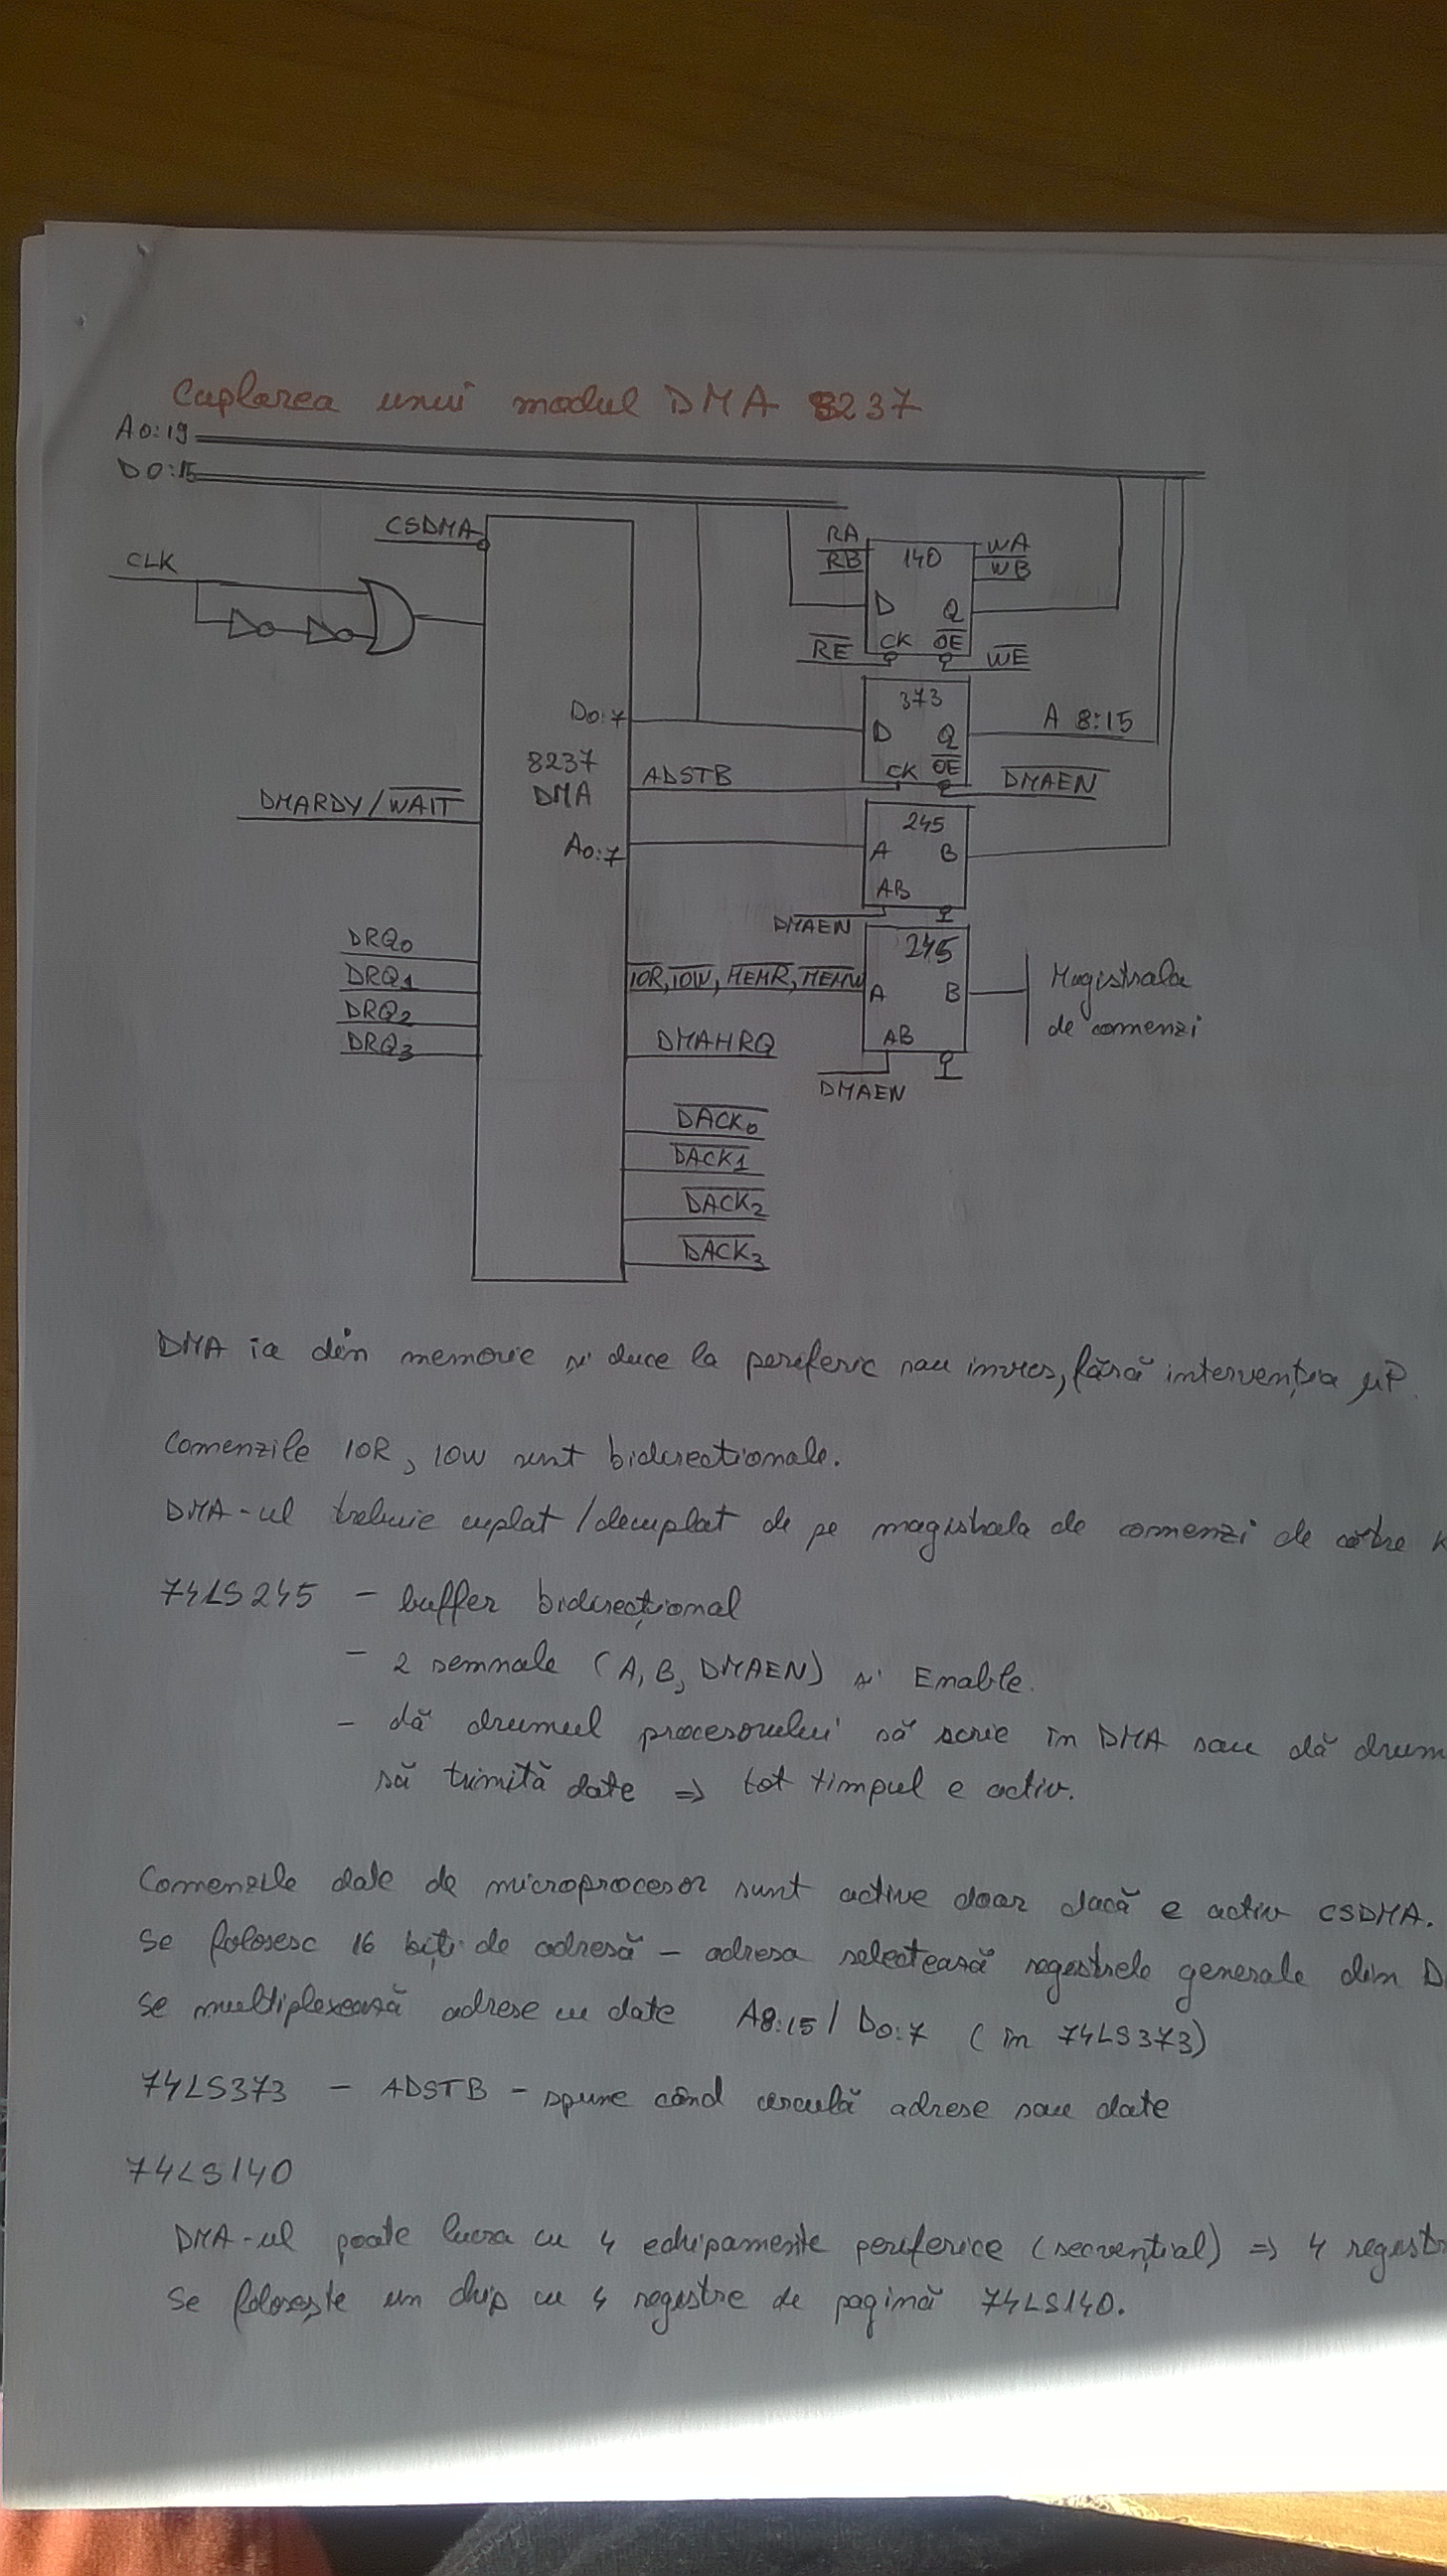 Cuplarea unui modul DMA 8237
A0:19
D0:15
CSDMA
CLK
RA
RB
140
WA
WB
D Q
CK OE
RE
WE
373
D0:7
D Q
A 8:15
8237
DMA
ADSTB
CK OE
DMAEN
DMARDY/WAIT
245
A0:7
A B
AB
DMAEN
DRQ0
DRQ1
DRQ2
DRQ3
IOR, IOW, MEMR, MEMW
245
A B
AB
Magistrala
de comenzi
DMAHRQ
DMAEN
DACK0
DACK1
DACK2
DACK3
DMA ia din memorie și duce la periferic sau invers, fără intervenția µP.
Comenzile IOR, IOW sunt bidirectionale.
DMA-ul trebuie cuplat/decuplat de pe magistrala de comenzi de către
74LS245 - buffer bidirecțional
- 2 semnale (A, B, DMAEN) și Enable.
- dă drumul procesorului să scrie în DMA sau dă drum
să trimită date => tot timpul e activ.
Comenzile date de microprocesor sunt active doar dacă e activ CSDMA.
Se folosesc 16 biți de adresă - adresa selectează registrele generale din D
Se multiplexează adrese cu date A8:15 / D0:7 (în 74LS373)
74LS373 - ADSTB - spune când circulă adrese sau date
74LS140
DMA-ul poate lucra cu 4 echipamente periferice (secvențial) => 4 registr
Se folosește un chip cu 4 registre de pagină 74LS140.